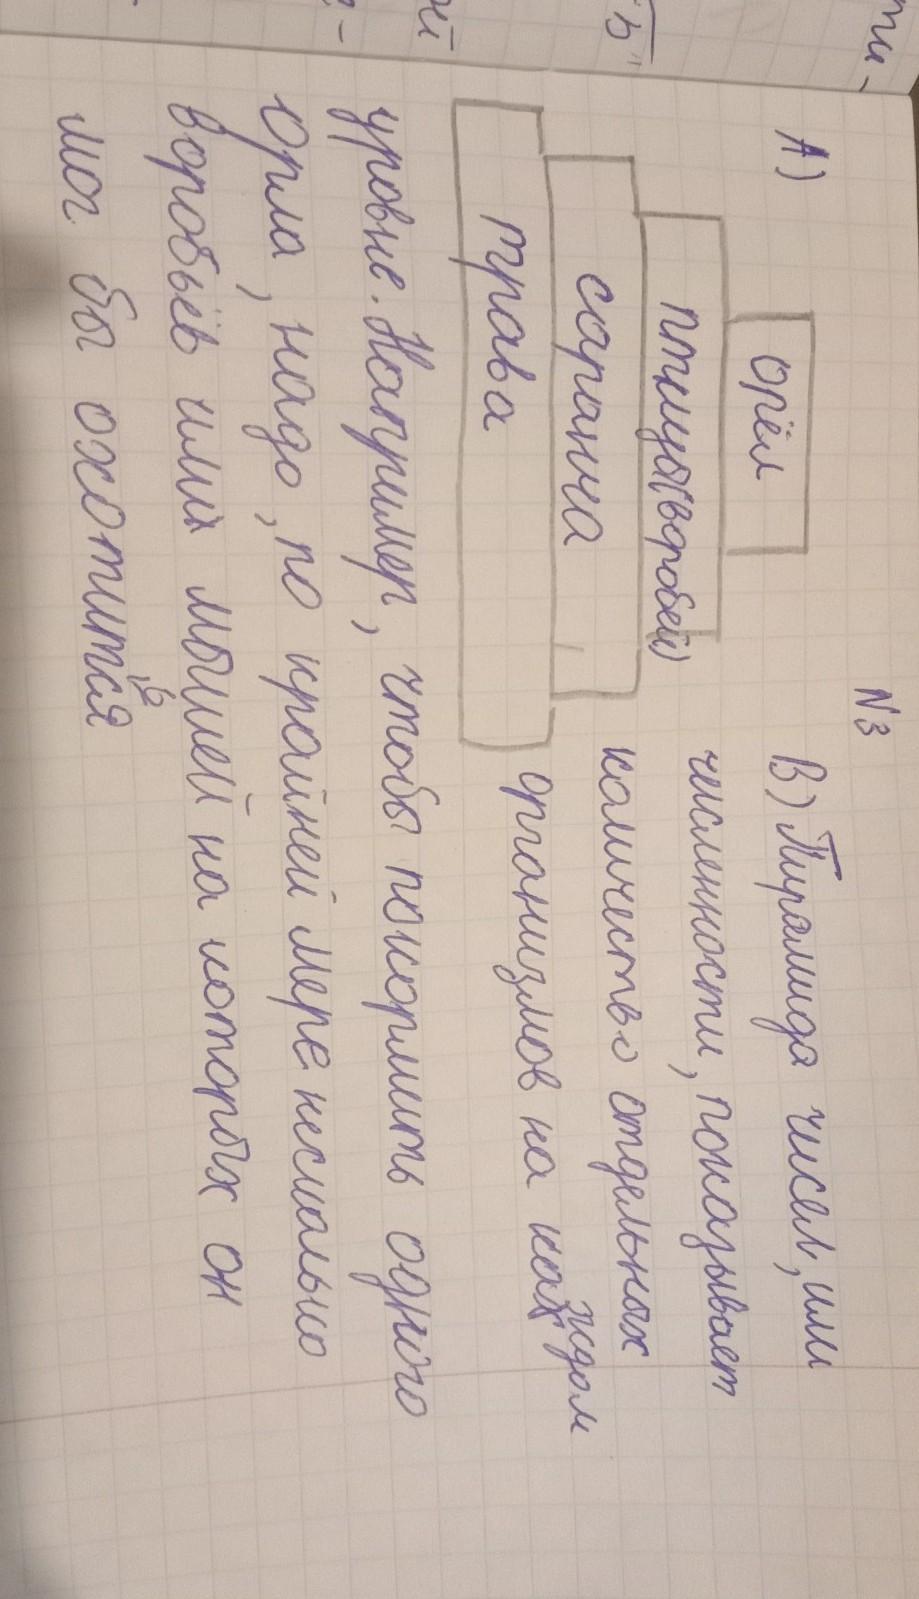 N3
A)
орёл
птицы(воробей)
саранча
трава
В) Пирамида чисел, или
численности, показывает
количество отдельных
организмов на каждом
уровне. Например, чтобы покормить одного
Орла, надо, по крайней мере несколько
воробьёв или мышей на которых он
мог бы охотиться